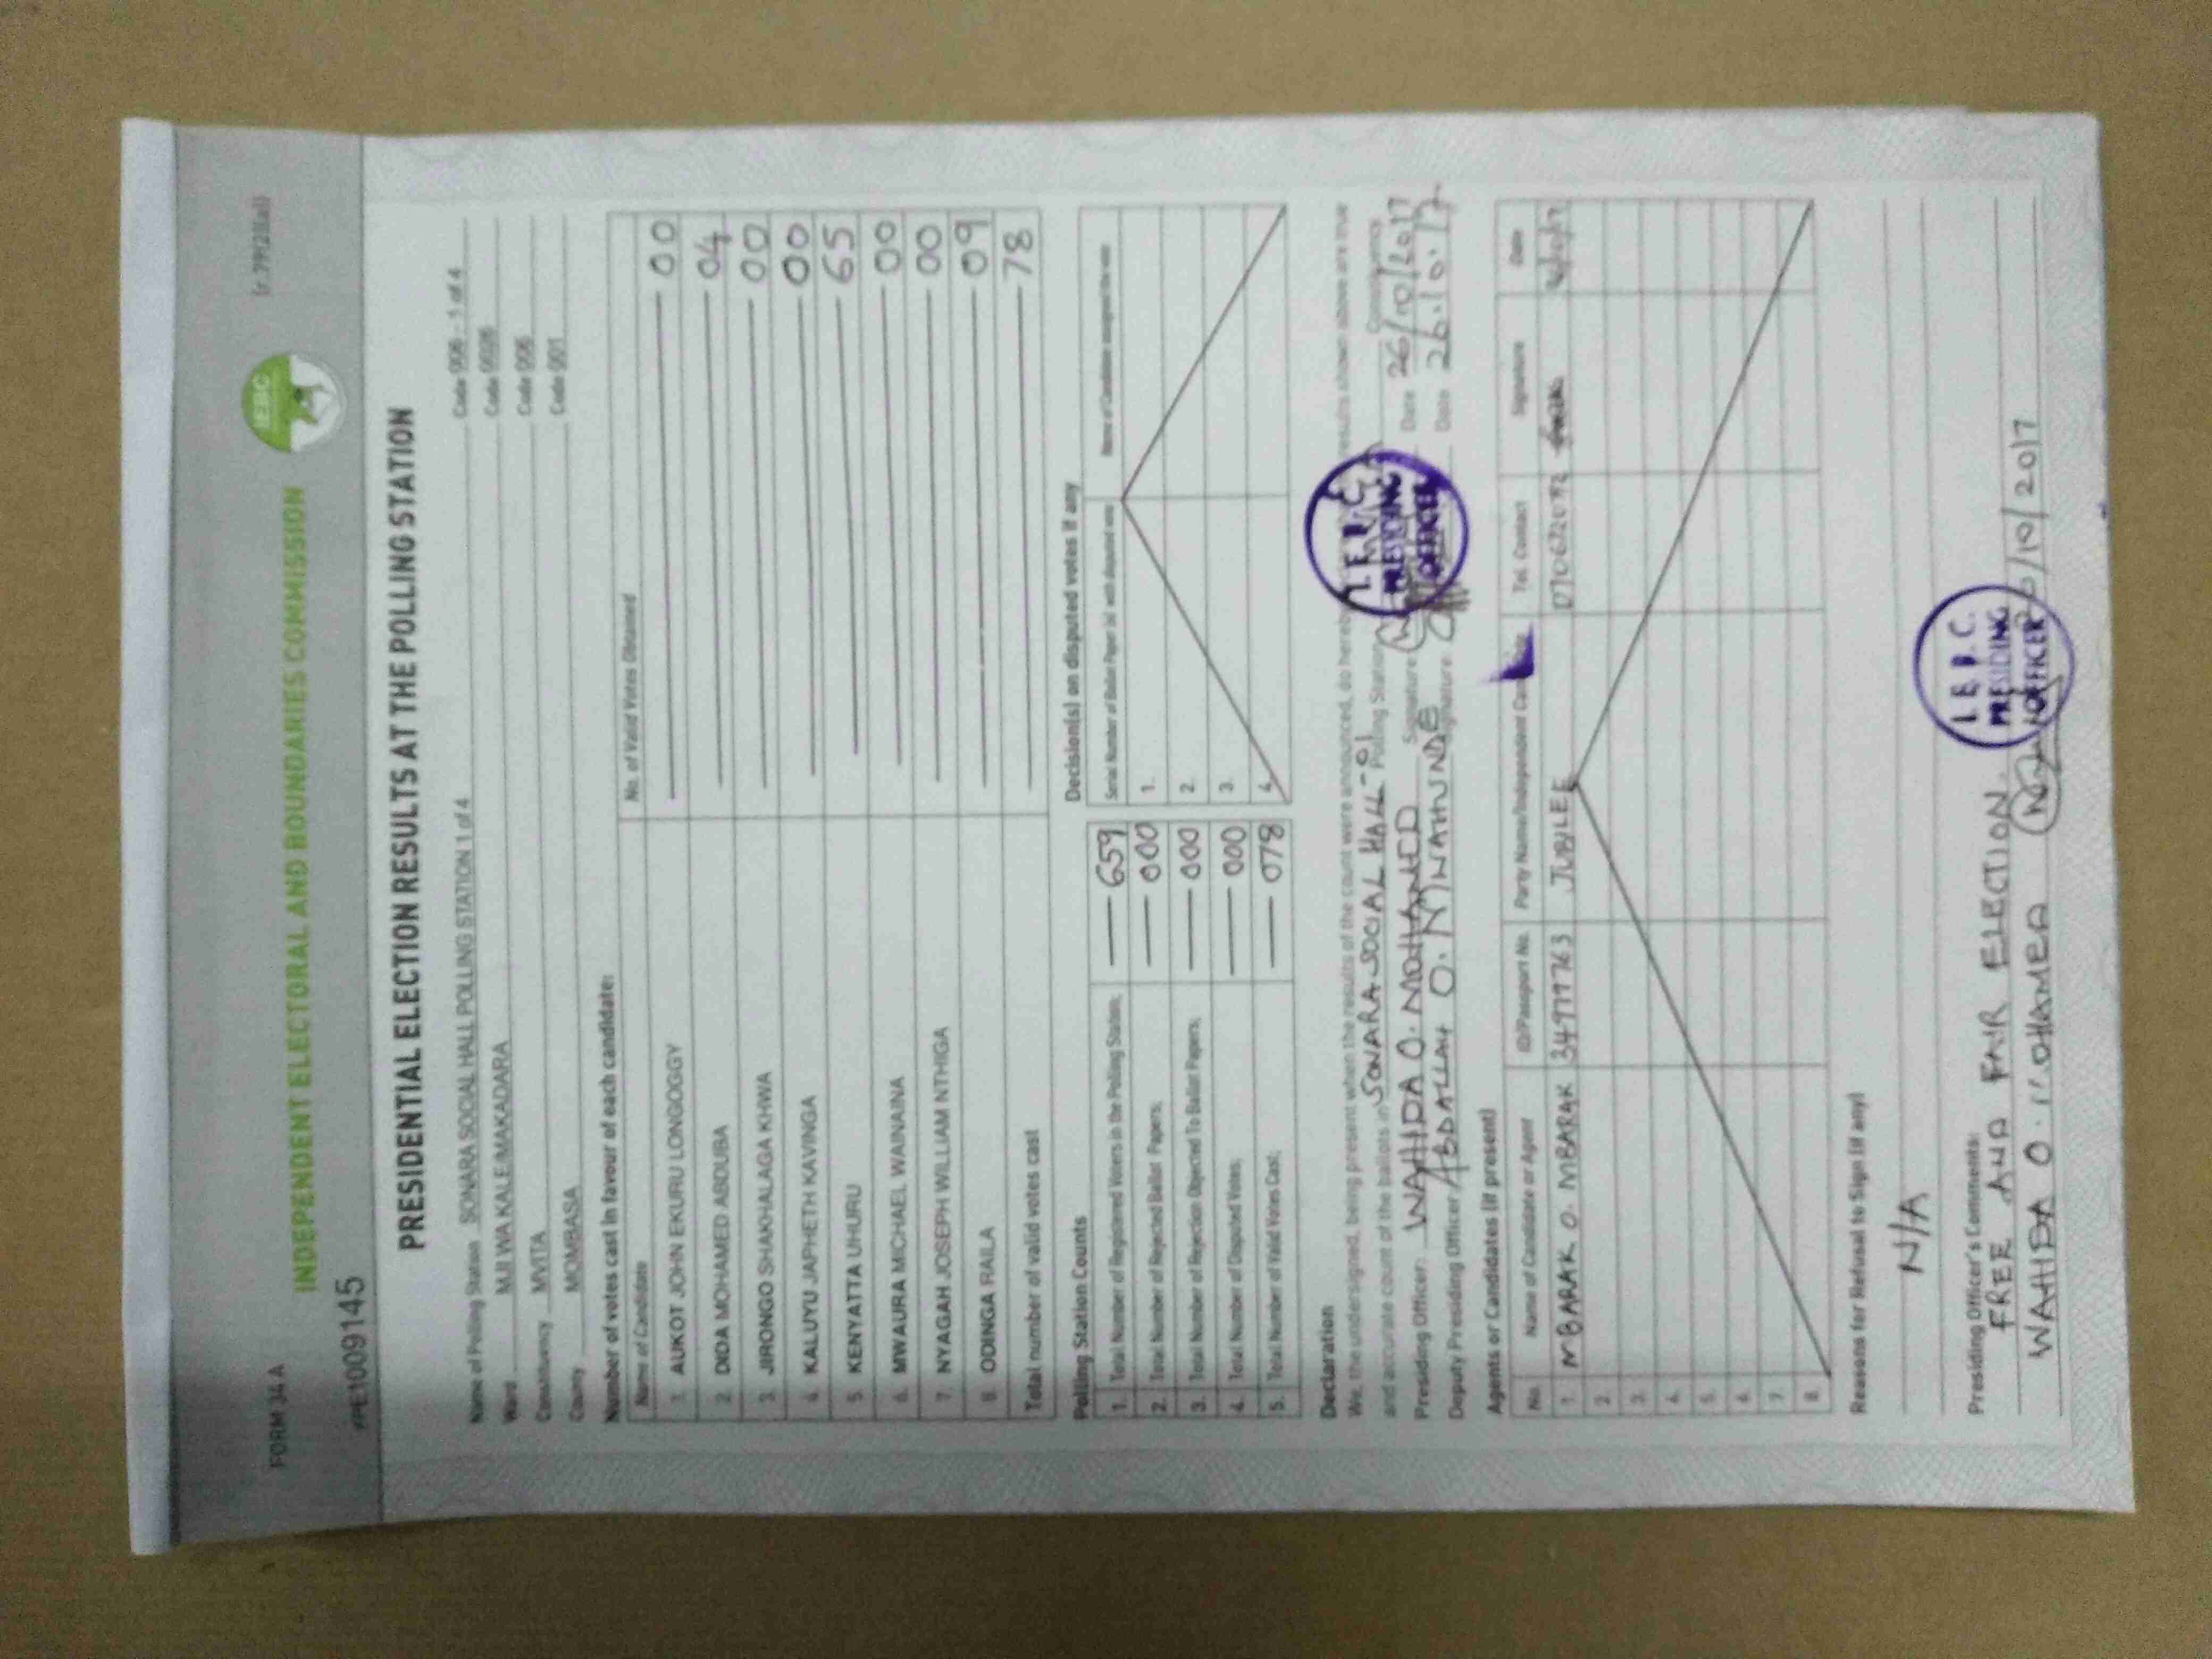 FORM 34 A
(r.79(2)(a))
IEBC
INDEPENDENT ELECTORAL AND BOUNDARIES COMMISSION
PRE1009145
PRESIDENTIAL ELECTION RESULTS AT THE POLLING STATION
Name of Polling Station SONARA SOCIAL HALL POLLING STATION 1 of 4 Code 006 - 1 of 4
Ward MJI WA KALE/MAKADARA Code
Constituency MVITA Code 006
County MOMBASA Code 001
Number of votes cast in favour of each candidate:
Name of Candidate No. of Valid Votes Obtained
1. AUKOT JOHN EKURU LONGOGGY 00
2. DIDA MOHAMED ABDUBA 04
3. JIRONGO SHAKHALAGA KHWA 00
4. KALUYU JAPHETH KAVINGA 00
5. KENYATTA UHURU 65
6. MWAURA MICHAEL WAINAINA 00
7. NYAGAH JOSEPH WILLIAM NTHIGA 00
8. ODINGA RAILA 09
Total number of valid votes cast 78
Polling Station Counts
1. Total Number of Registered Voters in the Polling Station; 659
2. Total Number of Rejected Ballot Papers; 000
3. Total Number of Rejection Objected To Ballot Papers; 000
4. Total Number of Disputed Votes; 000
5. Total Number of Valid Votes Cast; 078
Decision(s) on disputed votes if any
Serial Number of Ballot Paper (s) with disputed vote Name of Candidate assigned the vote
1.
2.
3.
4.
Declaration
We, the undersigned, being present when the results of the count were announced, do hereby results shown above are true
and accurate count of the ballots in SONARA SOCIAL HALL - 01 Polling Station Constituency
Presiding Officer: WAHIDA O. MOHAMED Signature Date 26/10/2017
Deputy Presiding Officer ABDALLAH O. MWAHUNDE Signature Date 26.10.17
I.E.B.C.
PRESIDING
OFFICER
Agents or Candidates (if present)
No. Name of Candidate or Agent ID/Passport No. Party Name/Independent Tel. Contact Signature Date
1. MBARAK O. MBARAK 34977763 JUBILEE
2.
3.
4.
5.
6.
7.
8.
Reasons for Refusal to Sign (if any)
N/A
Presiding Officer's Comments:
FREE AND FAIR ELECTION.
WAHIDA O. MOHAMED /10/2017
I.E.B.C.
PRESIDING
OFFICER